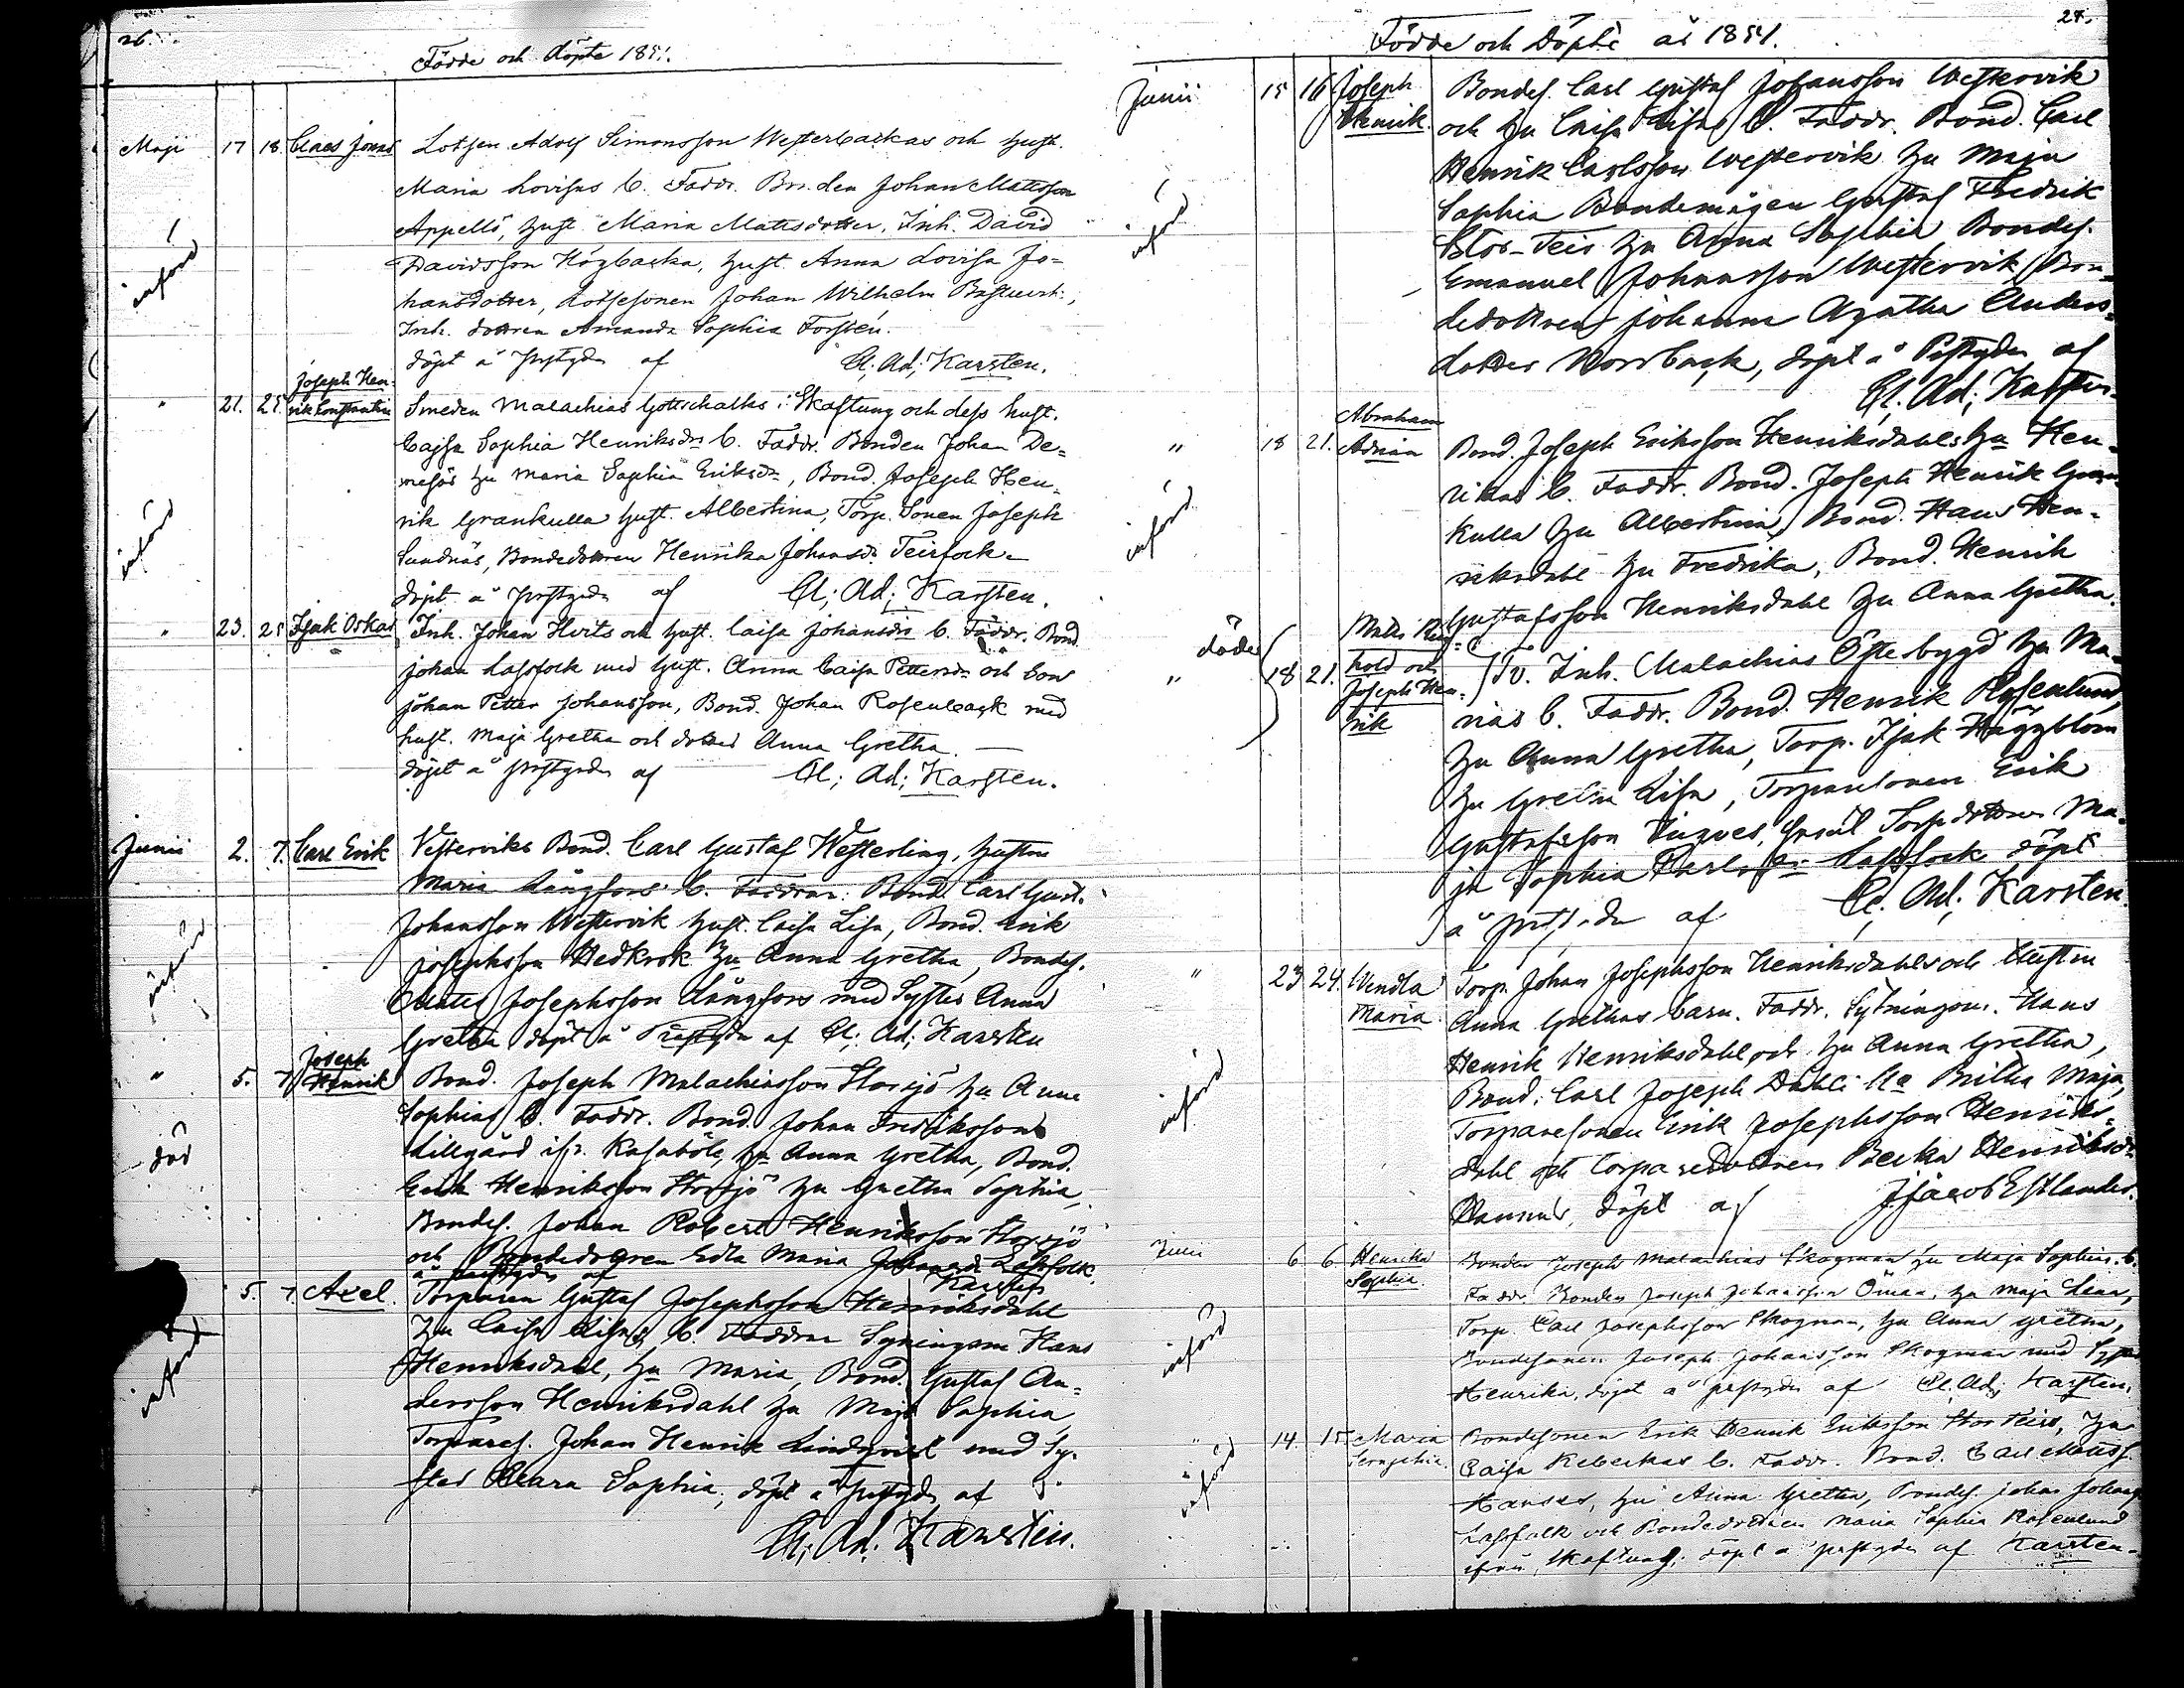 26.
Födde och döpte 1851.
Maji 17 18. Claes Jonas Lotsen Adolf Simonsson Westerbackas och hust.
Maria Lovisas b. Faddr. Bonden Johan Mattsson
Appellö, hust. Maria Mattsdotter, Inh. David
införd
Davidsson Högbacka, hust. Anna Lovisa Jo-
hansdotter, Lotsesonen Johan Wilhelm
Inh. dottren Amanda Sophia Forstén.
döpt å prstgdn af Cl; Ad; Karsten.
Joseph Hen-
" 21. 25. rik Constantin Smeden Malachias Gottschalks i Skaftung och dess hust.
Cajsa Sophia Henriksdrs b. Faddr. Bonden Johan De-
mesös hu Maria Sophia Eriksdr, Bond. Joseph Hen-
rik Grankulla hust. Albertina, Torp. Sonen Joseph
införd
Sundnäs, Bondedottren Henrika Johansdr Teirfock.
döpt å prstgdn af Cl; Ad; Karsten.
" 23. 25 Isak Oskar Inh. Johan Hvits och hust. Caisa Johansdrs b. Faddr. Bond
Johan Lassfock med hust. Anna Caisa Pettersdr och Son
Johan Petter Johansson, Bond. Johan Rosenback med
hust. Maja Gretha och dotter Anna Gretha.
döpt å prstgdn af Cl; Ad; Karsten.
Junii 2. 7. Carl Erik Vesterviks Bond. Carl Gustaf Westerling, hustrun
Maria Långfors b. Faddrar: Bond. Carl Gust.
Johansson Westervik hust. Caisa Lisa, Bond. Erik
införd
Josephsson Hedkrok hu Anna Gretha, Bondes.
Matts Josephsson Långfors med Syster Anna
Gretha döpt å Prästgdn af Cl; Ad; Karsten
Joseph
" 5. 7 Henrik Bond. Joseph Malachiasson Storsjö hu Anna
Sophias b. Faddr. Bond. Johan Fredriksson
död
Lillgård ifr. Kasaböle, hu Anna Gretha, Bond.
Erik Henriksson Storsjö hu Gretha Sophia,
Bondes. Johan Robert Henriksson Storsjö
och Bondedottren Edla Maria Lassfolk
å prstgdn af Karsten
5. 7. Axel. Torparen Gustaf Josephsson Henriksdahl
hu Caisa Lisas b. Faddrar Sytningsm. Hans
införd
Henriksdahl, hu Maria, Bond. Gustaf An-
dersson Henriksdahl hu Maja Sophia
Torpares. Johan Henrik Lindqvist med Sy-
ster Clara Sophia, döpt å prstgdn af
Cl; Ad; Karsten.
27.
Födde och Döpte år 1851.
Junii 15 16 Joseph Bondes. Carl Gustaf Johansson Westervik
Henrik. och hu Caisa Lisas b. Faddr. Bond. Carl
Henrik Carlsson Westervik hu Maja
Sophia Bondemågen Gustaf Fredrik
införd
Stor-Teir hu Anna Sophia, Bondes.
Emanuel Johansson Westervik, Bon-
dedottren Johanna Agatha Anders-
dotter Norrback, döpt å Pstgdn af
Cl; Ad; Karsten
Abraham
" 18 21. Adrian Bond. Joseph Eriksson Henriksdahls hu Hen-
rikas b. Faddr. Bond. Joseph Henrik Gran-
införd
kulla hu Albertina, Bond. Hans Hen-
riksdahl hu Fredrika, Bond. Henrik
Gustafsson Henriksdahl hu Anna Gretha.
döde
Matts
" 18 21. hold och Tv. Inh. Malachias Österbygd hu Ma-
Joseph Hen-
rik rias b. Faddr. Bond. Henrik Rosenlund,
hu Anna Gretha, Torp. Isak Häggblom
hu Gretha Lisa, Torparesonen Erik
Gustafsson Torpdottren Ma-
ja Sophia Lassfock döpt
å prstgdn af Cl. Ad; Karsten
" 23 24. Wendla Torp. Johan Josephsson Henriksdahls och Hustrun
Maria Anna Grethas barn. Faddr. Sytningsm. Hans
Henrik Henriksdahl och hu Anna Gretha,
Bond. Carl Joseph Dahl Britha Maja,
införd
Torparesonen Erik Josephsson Henriks-
dahl och Torparedottren Henriksdr
döpt af J Jacob Estlander.
Julii 6 6 Henrika Bonden Joseph Malachias Skogman hu Maja Sophias b.
Sophia. Faddr. Bonden Joseph Johansson Öman, hu Maja Lena,
Torp. Carl Josephsson Skogman, hu Anna Gretha,
införd
Bondesonen Joseph Johansson Skogman med Syster
Henrika, döpt å prstgdn af Cl. Ad; Karsten.
" 14. 15. Maria Bondesonen Erik Henrik Eriksson StorTeirs, hu
Seraphia. Caisa Rebeckas b. Faddr. Bond. Carl Mattss.
införd
Hanses, hu Anna Gretha, Bondes. Johan Johans
Lassfolk och Bondedottren Maria Sophia Rosenlund
ifrån Skaftung; döpt å prstgdn af Karsten